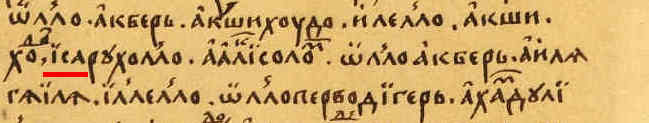 ѿллѻ. а҆кберь. а҆кшихоудо. и҆лелло. а҆кши.
хо, і҆сарухолло. а҆алі҆солом. ѿлло а҆кберь. а҆и҆лѧ
гѧі҆лѧ. і҆ллелло. ѿллоперводі҆герь. а҆хамдулі҆